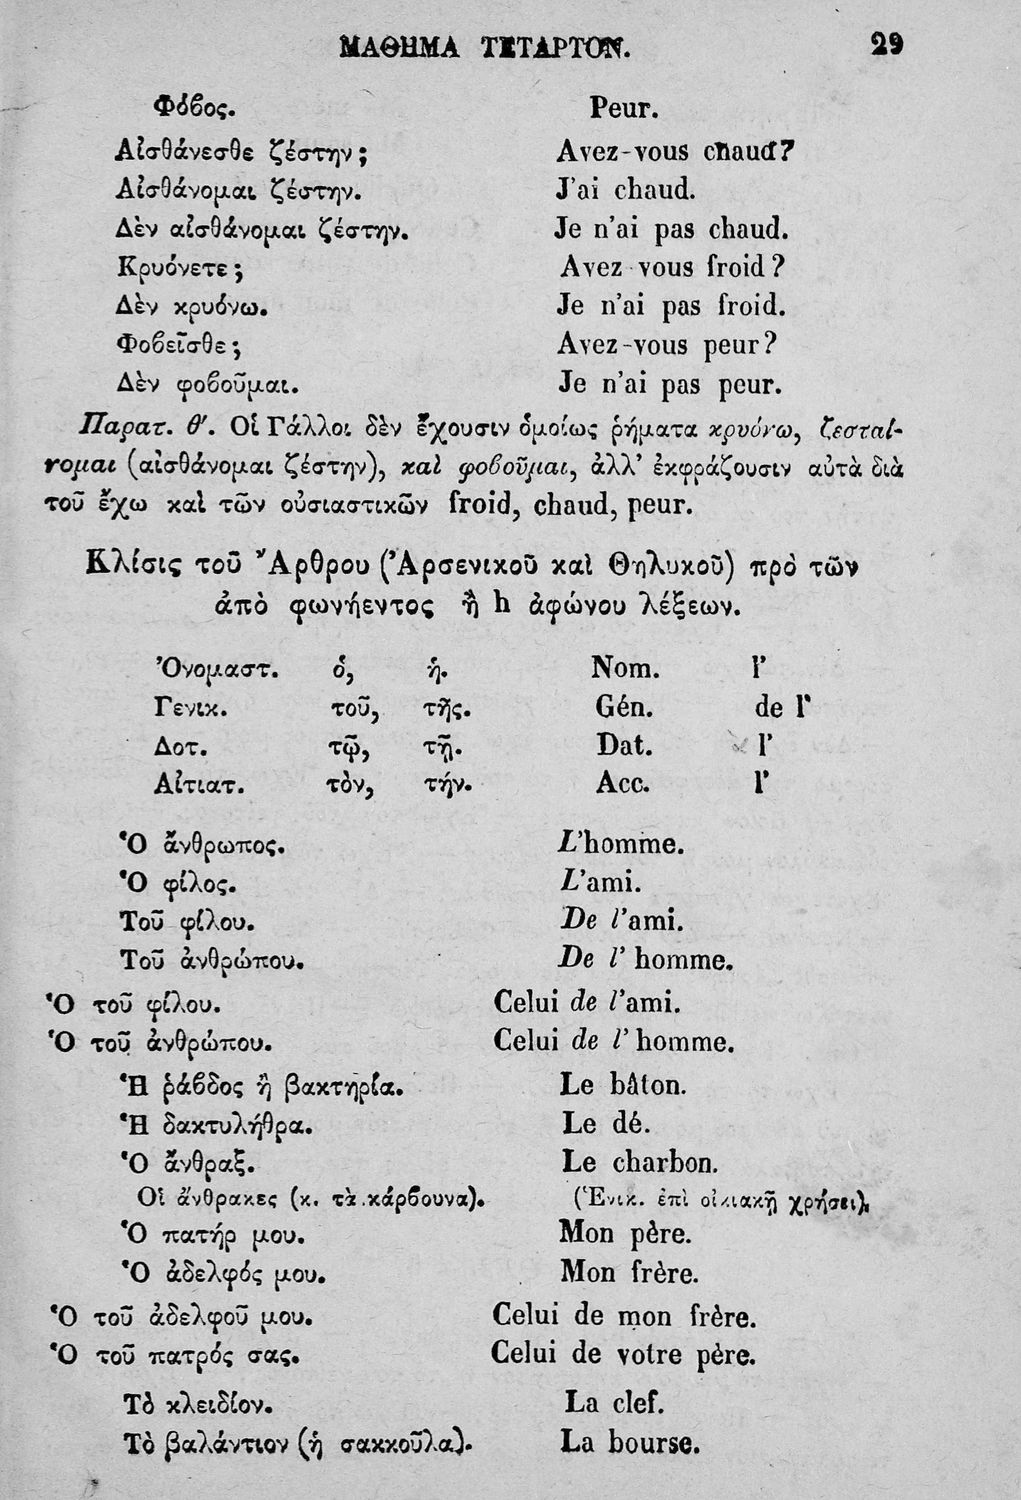 ΜΑΘΗΜΑ ΤΕΤΑΡΤΟΝ. 29
Φόβος. Peur.
Αἰσθάνεσθε ζέστην; Avez-vous chaud?
Αἰσθάνομαι ζέστην. J'ai chaud.
Δὲν αἰσθάνομαι ζέστην. Je n'ai pas chaud.
Κρυόνετε; Avez vous froid?
Δὲν κρυόνω. Je n'ai pas froid.
Φοβεῖσθε; Avez-vous peur?
Δὲν φοβοῦμαι. Je n'ai pas peur.
Παρατ. θ'. Οἱ Γάλλοι δὲν ἔχουσιν ὁμοίως ῥήματα κρυόνω, ζεσταί-
νομαι (αἰσθάνομαι ζέστην), καὶ φοβοῦμαι, ἀλλ' ἐκφράζουσιν αὐτὰ διὰ
τοῦ ἔχω καὶ τῶν οὐσιαστικῶν froid, chaud, peur.
Κλίσις τοῦ Ἄρθρου (Ἀρσενικοῦ καὶ Θηλυκοῦ) πρὸ τῶν
ἀπὸ φωνήεντος ἢ h ἀφώνου λέξεων.
Ὀνομαστ. ὁ, ἡ. Nom. l'
Γενικ. τοῦ, τῆς. Gén. de l'
Δοτ. τῷ, τῇ. Dat. l'
Αἰτιατ. τὸν, τήν. Acc. l'
Ὁ ἄνθρωπος. L'homme.
Ὁ φίλος. L'ami.
Τοῦ φίλου. De l'ami.
Τοῦ ἀνθρώπου. De l' homme.
Ὁ τοῦ φίλου. Celui de l'ami.
Ὁ τοῦ ἀνθρώπου. Celui de l' homme.
Ἡ ῥάβδος ἢ βακτηρία. Le bâton.
Ἡ δακτυλήθρα. Le dé.
Ὁ ἄνθραξ. Le charbon.
Οἱ ἄνθρακες (κ. τὰ κάρβουνα). (Ἑνικ. ἐπὶ οἰκιακῇ χρήσει).
Ὁ πατήρ μου. Mon père.
Ὁ ἀδελφός μου. Mon frère.
Ὁ τοῦ ἀδελφοῦ μου. Celui de mon frère.
Ὁ τοῦ πατρός σας. Celui de votre père.
Τὸ κλειδίον. La clef.
Τὸ βαλάντιον (ἡ σακκοῦλα). La bourse.